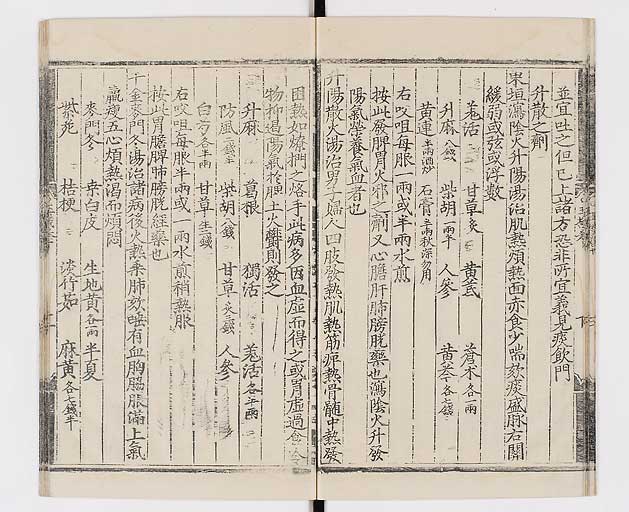 並宜吐之但已上諸方恐非所宜義見痰飲門
升散之劑
東垣瀉陰火升陽湯治肌熱煩熱面赤食少喘咳痰盛脉右關
緩弱或弦或浮數
羌活 甘草炙 黃芪 蒼朮各一兩
升麻八錢 柴胡一兩半 人參 黃芩各七錢
黃連半兩酒炒 石膏半兩秋深勿用
右㕮咀每服一兩或半兩水煎
按此發脾胃火邪之劑又心膽肝肺膀胱藥也瀉陰火升發
陽氣榮養氣血者也
升陽散火湯治男子婦人四肢發熱肌熱筋痺熱骨髓中熱發
困熱如燎捫之烙手此病多因血虛而得之或胃虛過食冷
物抑遏陽氣於脾土火鬱則發之
升麻 葛根 獨活 羌活各半兩
防風二錢半 柴胡八錢 甘草炙三錢 人參
白芍各半兩 甘草生二錢
右㕮咀每服半兩或一兩水煎稍熱服
按此胃膽脾肺膀胱經藥也
千金麥門冬湯治諸病後火熱乘肺咳唾有血胸脇脹滿上氣
羸瘦五心煩熱渴而煩悶
麥門冬 桑白皮 生地黃各一兩 半夏
紫菀 桔梗 淡竹茹 麻黃各七錢半